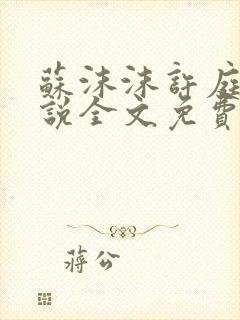 蘇沫沫許庭
說全文免費
蔣公